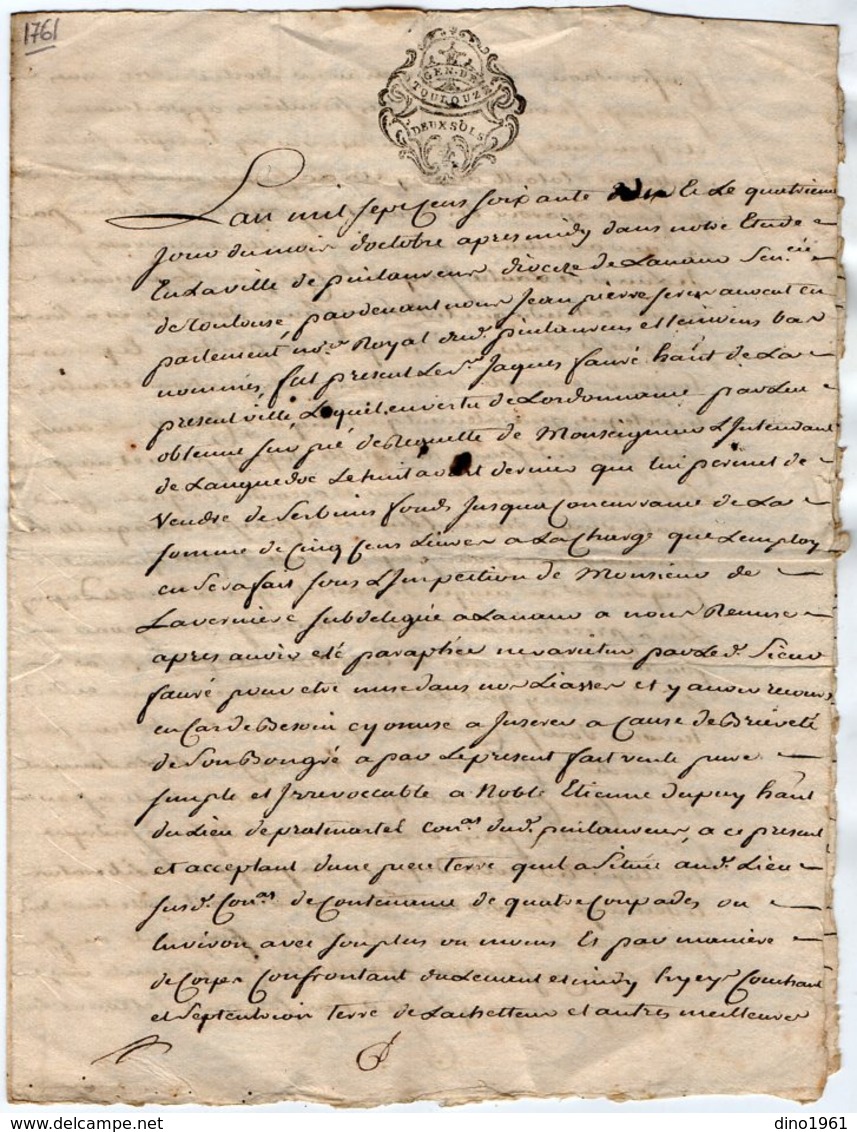 1761
GEN. DE
TOULOUZE
DEUX SOLS
Lan mil sept cens soixante et le quatrieme
jour du mois doctobre apres midy dans notre Etude
En la ville de puilaurens dioceze de Lavaur Sen.cée
de Toulouse, pardevant nous Jean pierre avocat en
parlement no.re Royal dud. puilaurens et temoins bas
nommés, fut present le sr. Jaques fauré hant de La
present ville, Lequel en vertu de Lordonnance par lui
obtenue sur pié de Requette de Monseigneur L'Intendant
de Languedoc Le huit avril dernier que lui permet de
vendre de ses biens fonds jusqua concurrance de La
somme de Cinq Cens Livres a La charge que Lemploy
en sera fait sous L'Inspection de Monsieur de
Laverniere subdelegué a Lavaur a nous Remise
apres avoir eté paraphée ne varietur par Le d. Sieur
fauré pour etre mise dans nos Liasses et y avoir recours
en Cas de Besoin cy omise a Inserer a Cause de Briéveté
de son Bon gré a par Le present fait vente pure
simple et Irrevoccable a Noble Etienne dupuy hant
du Lieu de pratmartel con.at dud. puilaurens, a ce present
et acceptant dune piece terre quil a Située aud. Lieu
susd. Con.at de Contenance de quatre Coupades ou
Environ avec son plus ou moins Et par maniere
de Corps Confrontant du Levant et midy Couchant
et Septentrion terre de Lachetteur et autres meilleures
dino1961